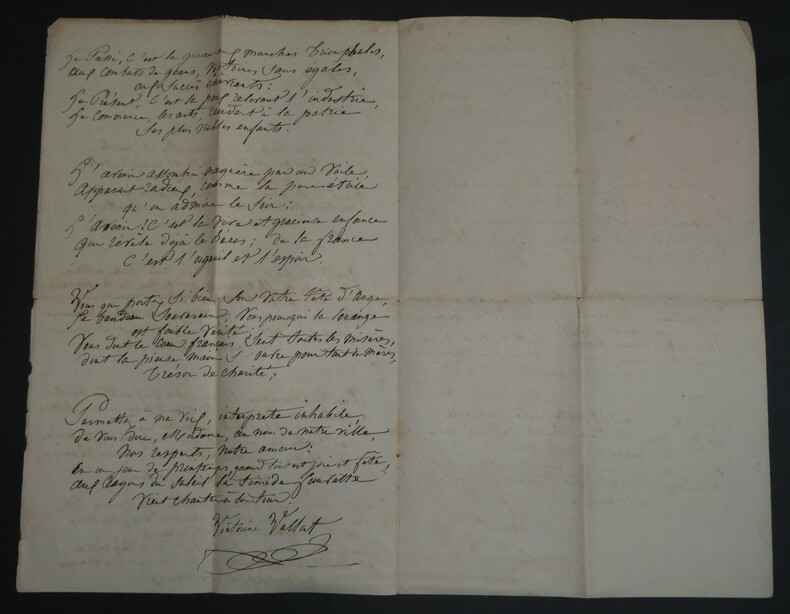 Le Passé, c'est la guerre marches triomphales,
aux combats de géans, victoires sans égales,
aux succès enivrants:
Le Présent, C'est la paix relevant l'industrie,
Le commerce, les arts, rendant à la patrie
Ses plus nobles enfants.
L'avenir assombri naguère par un voile,
Apparait radieux, comme la pure étoile
qu'on admire le soir:
L'avenir! C'est la vive et gracieuse enfance
qui révèle déjà le héros; de la france
C'est l'orgueil et l'espoir.
Vous qui portez si bien sur votre tête d'Ange,
Le bandeau Souverain; Vous pour qui la louange
est faible vérité;
Vous dont le cœur français sent toutes les misères,
dont la pieuse main s'ouvre pour tant de mères,
Trésor de charité;
Permettez à ma voix, interprète inhabile,
de vous dire, Madame, au nom de notre ville,
Nos respects, notre amour:
En un jour de printemps, quand tout est joie et fête,
aux rayons du soleil la timide fauvette
Vient chanter à son tour.
Victorine Vallat